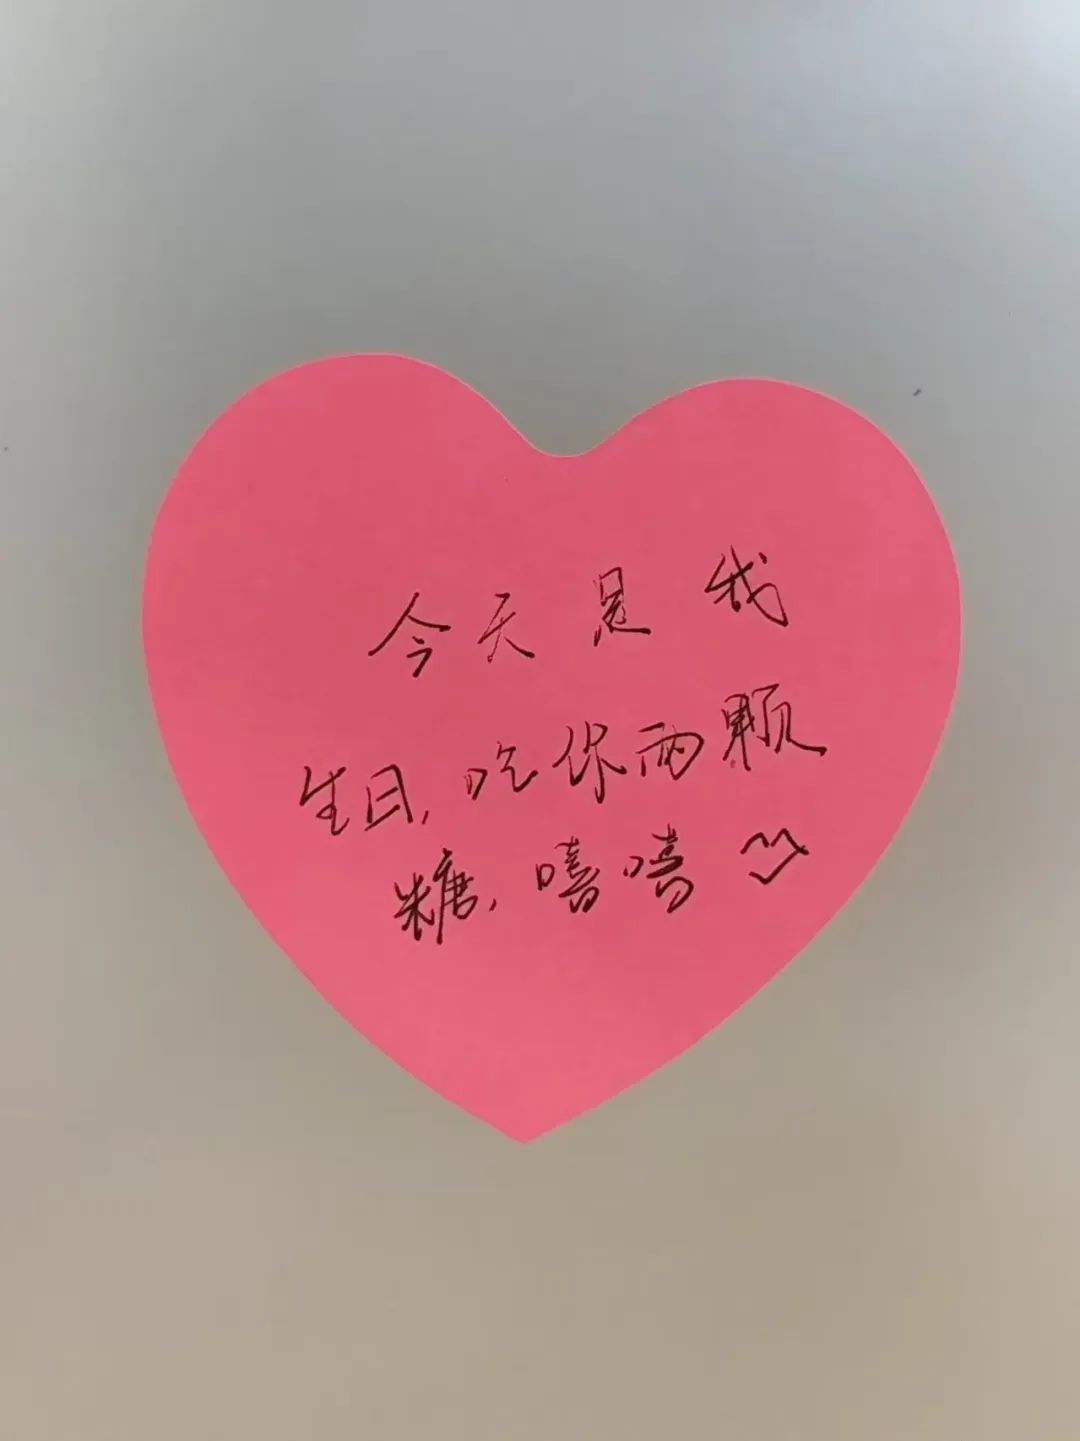 今天是我
生日,吃你两颗
糖,嘻嘻